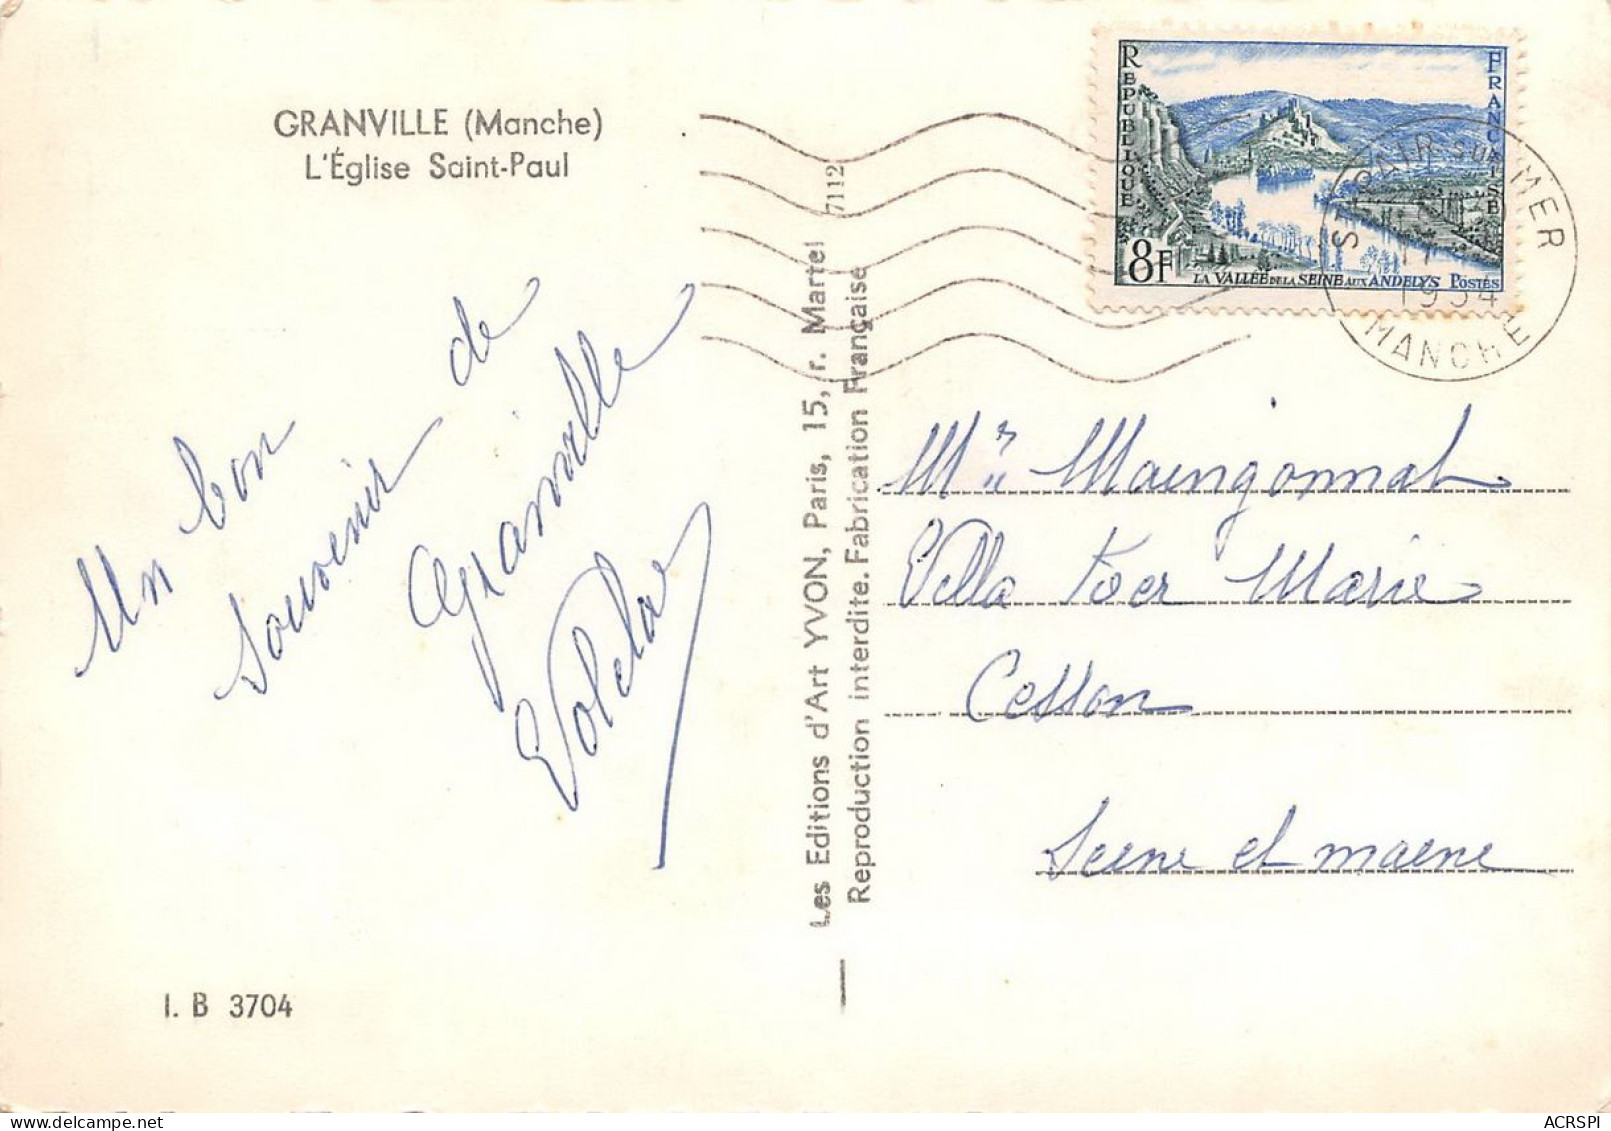 GRANVILLE (Manche)
L'Église Saint-Paul
Un bon
souvenir de
Granville
I. B 3704
Les Editions d'Art YVON, Paris, 15, r. Martel 7112
Reproduction interdite. Fabrication Française
RÉPUBLIQUE
FRANÇAISE
8F
LA VALLÉE DE LA SEINE AUX ANDELYS POSTES
ST PAIR SUR MER
1954
MANCHE
Villa Ker Marie
Cesson
Seine et marne
ACRSPI